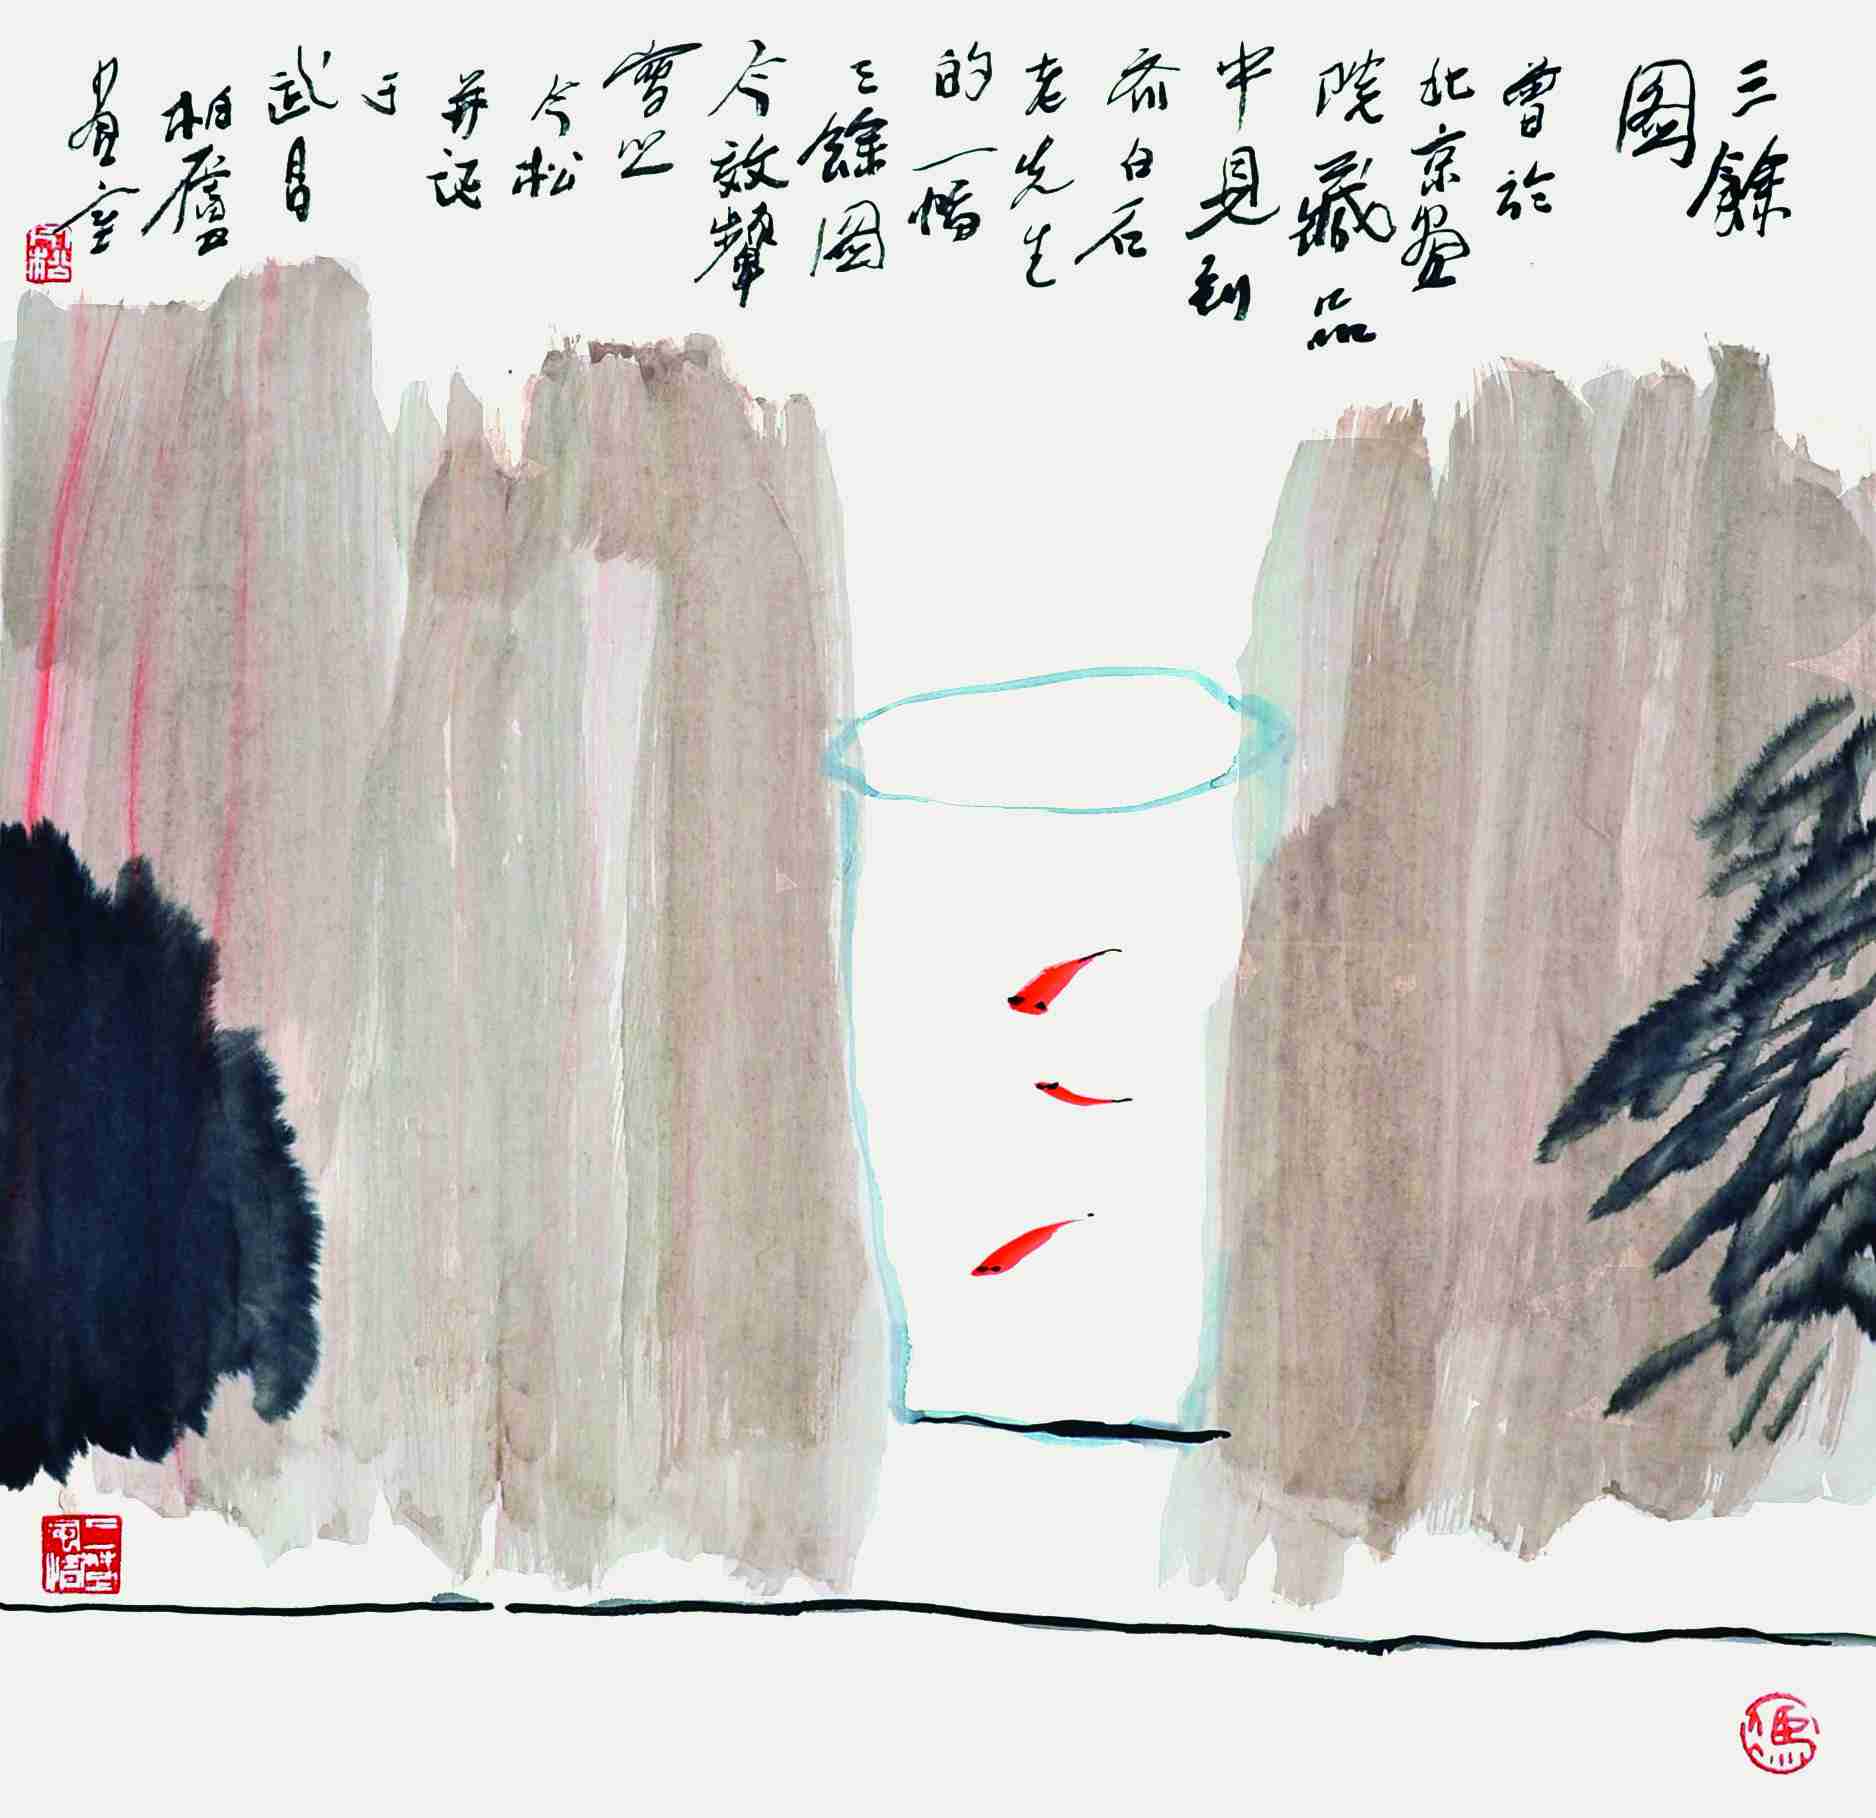 三餘
圖
曾於
北京畫
院藏品
中見到
齐白石
老先生
的一幅
三餘圖
今效顰
之
今松
并記
于
武昌
廬
畫室
馮